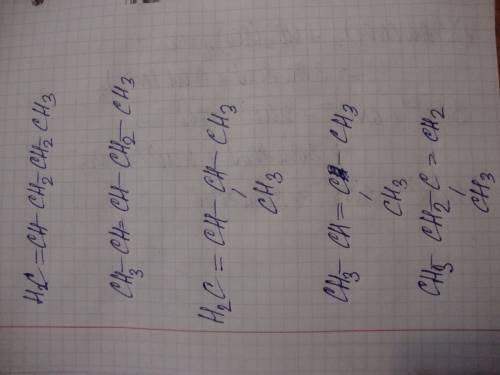 H₂C=CH-CH₂-CH₂-CH₃
CH₃-CH=CH-CH₂-CH₃
H₂C=CH-CH-CH₃
CH₃
CH₃-CH=C-CH₃
CH₃
CH₃-CH₂-C=CH₂
CH₃